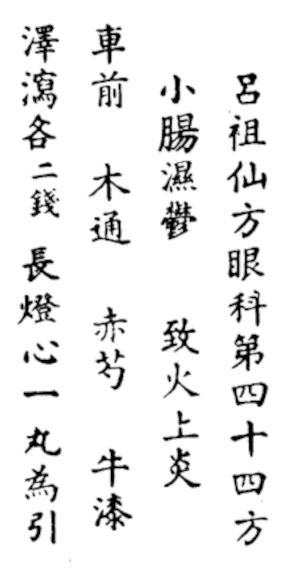 呂祖仙方眼科第四十四方
小腸濕鬱 致火上炎
車前 木通 赤芍 牛漆
澤瀉各二錢 長燈心一丸為引